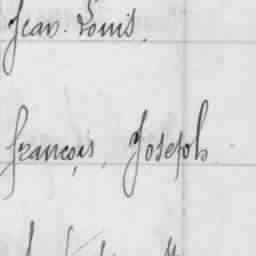 Jean. Louis.
François, Joseph